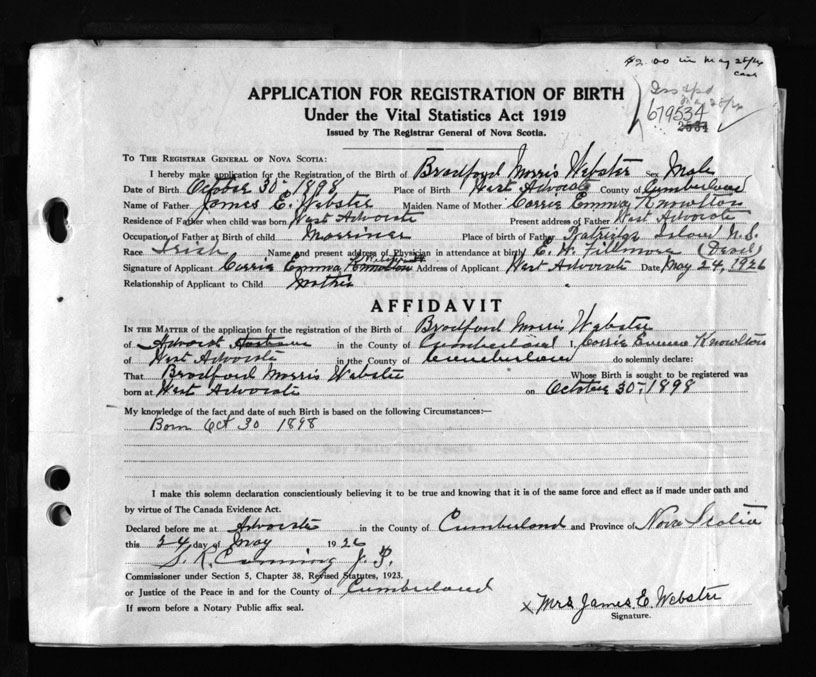 $2.00 in May 25/26
APPLICATION FOR REGISTRATION OF BIRTH
Under the Vital Statistics Act 1919
Issued by The Registrar General of Nova Scotia.
679534
2534
TO THE REGISTRAR GENERAL OF NOVA SCOTIA:
I hereby make application for the Registration of the Birth of Bradford Morris Webster Sex Male
Date of Birth October 30 - 1898 Place of Birth West Advocate County of Cumberland
Name of Father James E. Webster Maiden Name of Mother Carrie Emma Knowlton
Residence of Father when child was born West Advocate Present address of Father West Advocate
Occupation of Father at Birth of child Marriner Place of birth of Father Island N.S.
Race Irish Name and present address of Physician in attendance at birth E. W. Fillmore (Dead)
Signature of Applicant Carrie Emma Knowlton Webster Address of Applicant West Advocate Date May 24, 1926
Relationship of Applicant to Child Mother
AFFIDAVIT
IN THE MATTER of the application for the registration of the Birth of Bradford Morris Webster
of Advocate in the County of Cumberland I, Carrie Emma Knowlton
of West Advocate in the County of Cumberland do solemnly declare:
That Bradford Morris Webster Whose Birth is sought to be registered was
born at West Advocate on October 30 - 1898
My knowledge of the fact and date of such Birth is based on the following Circumstances:—
Born Oct 30 1898
I make this solemn declaration conscientiously believing it to be true and knowing that it is of the same force and effect as if made under oath and
by virtue of The Canada Evidence Act.
Declared before me at Advocate in the County of Cumberland and Province of Nova Scotia
this 24 day of May 1926
J. P.
Commissioner under Section 5, Chapter 38, Revised Statutes, 1923.
or Justice of the Peace in and for the County of Cumberland
If sworn before a Notary Public affix seal.
x Mrs James E. Webster
Signature.